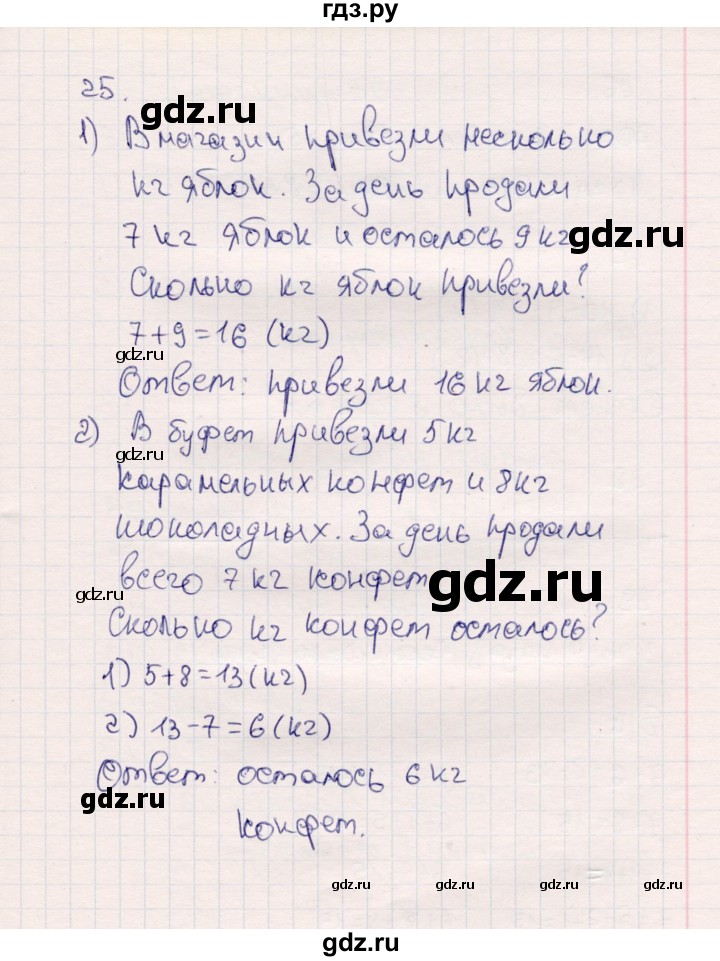 гдз.ру
25.
gdz.ru
1) В магазин привезли несколько
кг яблок. За день продали
7 кг яблок и осталось 9 кг
gdz.ru
Сколько кг яблок привезли?
7+9=16 (кг)
gdz.ru
Ответ: привезли 16 кг яблок.
2) В буфет привезли 5 кг
gdz.ru
карамельных конфет и 8 кг
шоколадных. За день продали
всего 7 кг конфет
gdz.ru
gdz.ru
Сколько кг конфет осталось?
1) 5+8=13 (кг)
2) 13-7=6 (кг)
Ответ: осталось 6 кг
gdz.ru
конфет.
gdz.ru gdz.ru gdz.ru
gdz.ru